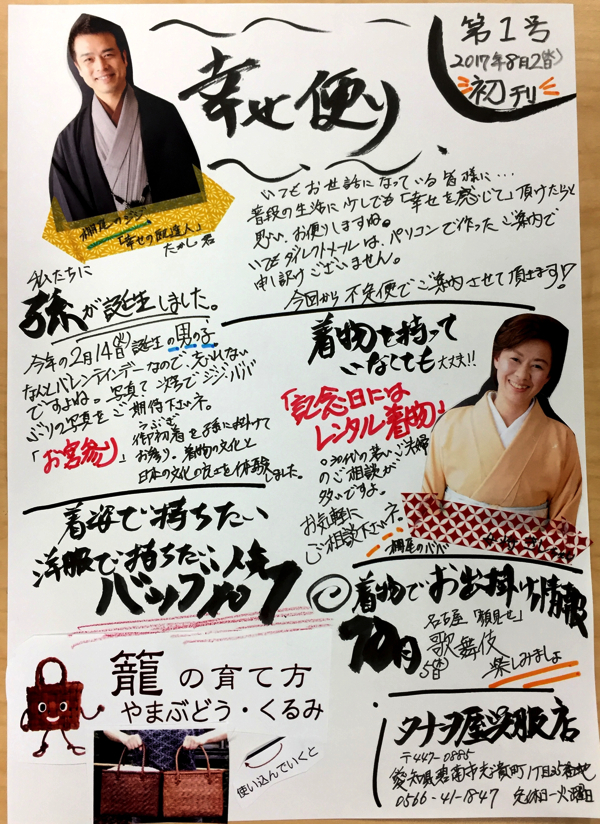 幸せ便り
第1号
2017年8月2日(水)
初刊
棚尾のジジ
「幸せの配達人」
たかし君
いつもお世話になっている皆様に…
普段の生活に少しでも「幸せを感じて」頂けたらと
思い、お便りしますね。
いつもダイレクトメールは、パソコンで作ったご案内で
申し訳ございません。
今回から不定便でご案内させて頂ます!!
私たちに
孫が誕生しました。
今年の2月14日(火)誕生の男の子。
なんとバレンタインデーなので、忘れない
ですよね。写真て次号でジジ・ババ
ぶりの写真をご期待下さいネ。
「お宮参り」
うぶぎ
御初着を孫に掛けて
お参り。着物の文化と
日本の文化の良さを体験しました。
着物を持って
いなくても大丈夫!!
「記念日には
レンタル着物」
30代の若いご夫婦
のご相談が
多いですよ。
お気軽に
ご相談下さいネ。
棚尾のババ
着姿で持ちたい
洋服で持ちたい人気
バッグ
籠の育て方
やまぶどう・くるみ
使い込んでいくと
着物でお出掛け情報
10月
5日
名古屋「顔見せ」
歌舞伎
楽しみましょ
タナヲ屋呉服店
〒447-0885
愛知県碧南市志貴町1丁目25番地
0566-41-1847 定休日-火曜日